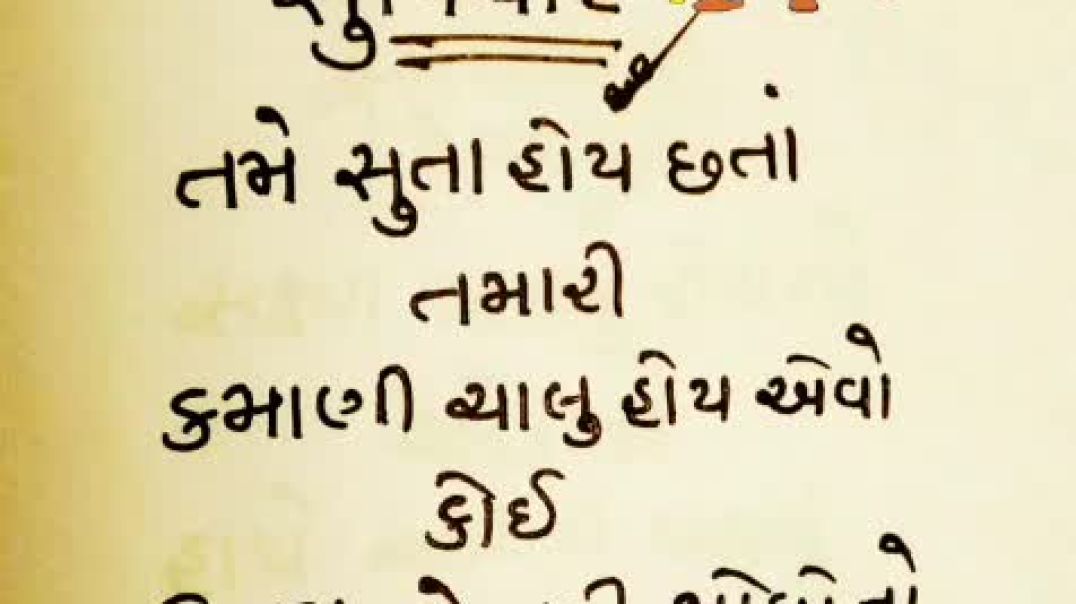 સુવિચાર
તમે સુતા હોય છતાં
તમારી
કમાણી ચાલુ હોય એવો
કોઈ